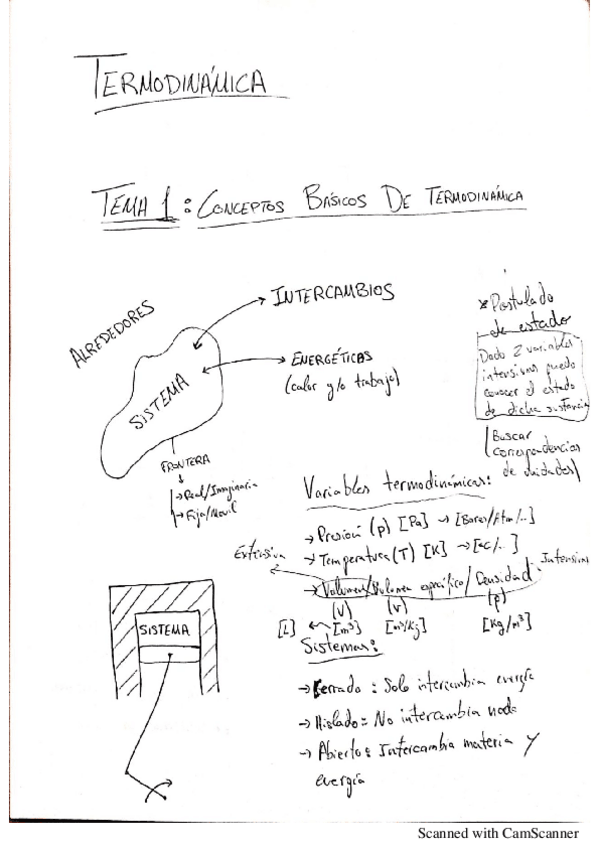 TERMODINÁMICA
TEMA 1: CONCEPTOS BÁSICOS DE TERMODINÁMICA
ALREDEDORES
SISTEMA
INTERCAMBIOS
ENERGÉTICOS
(calor y/o trabajo)
FRONTERA
→ Real/Imaginaria
→ Fija/Movil
* Postulado
de estado
Dado 2 variables
intensivas puedo
conocer el estado
de dicha sustancia
(Buscar
correspondencias
de unidades)
Variables termodinámicas:
→ Presión (p) [Pa] → [Bares/Atm/..]
→ Temperatura (T) [K] → [ºC/..]
→ Volumen/Volumen específico/Densidad
Extensiva
Intensivas
(V) (v) (ρ)
[L] ← [m³] [m³/Kg] [Kg/m³]
SISTEMA
Sistemas:
→ Cerrado: Solo intercambia energía
→ Aislado: No intercambia nada
→ Abierto: Intercambia materia y
energía
Scanned with CamScanner